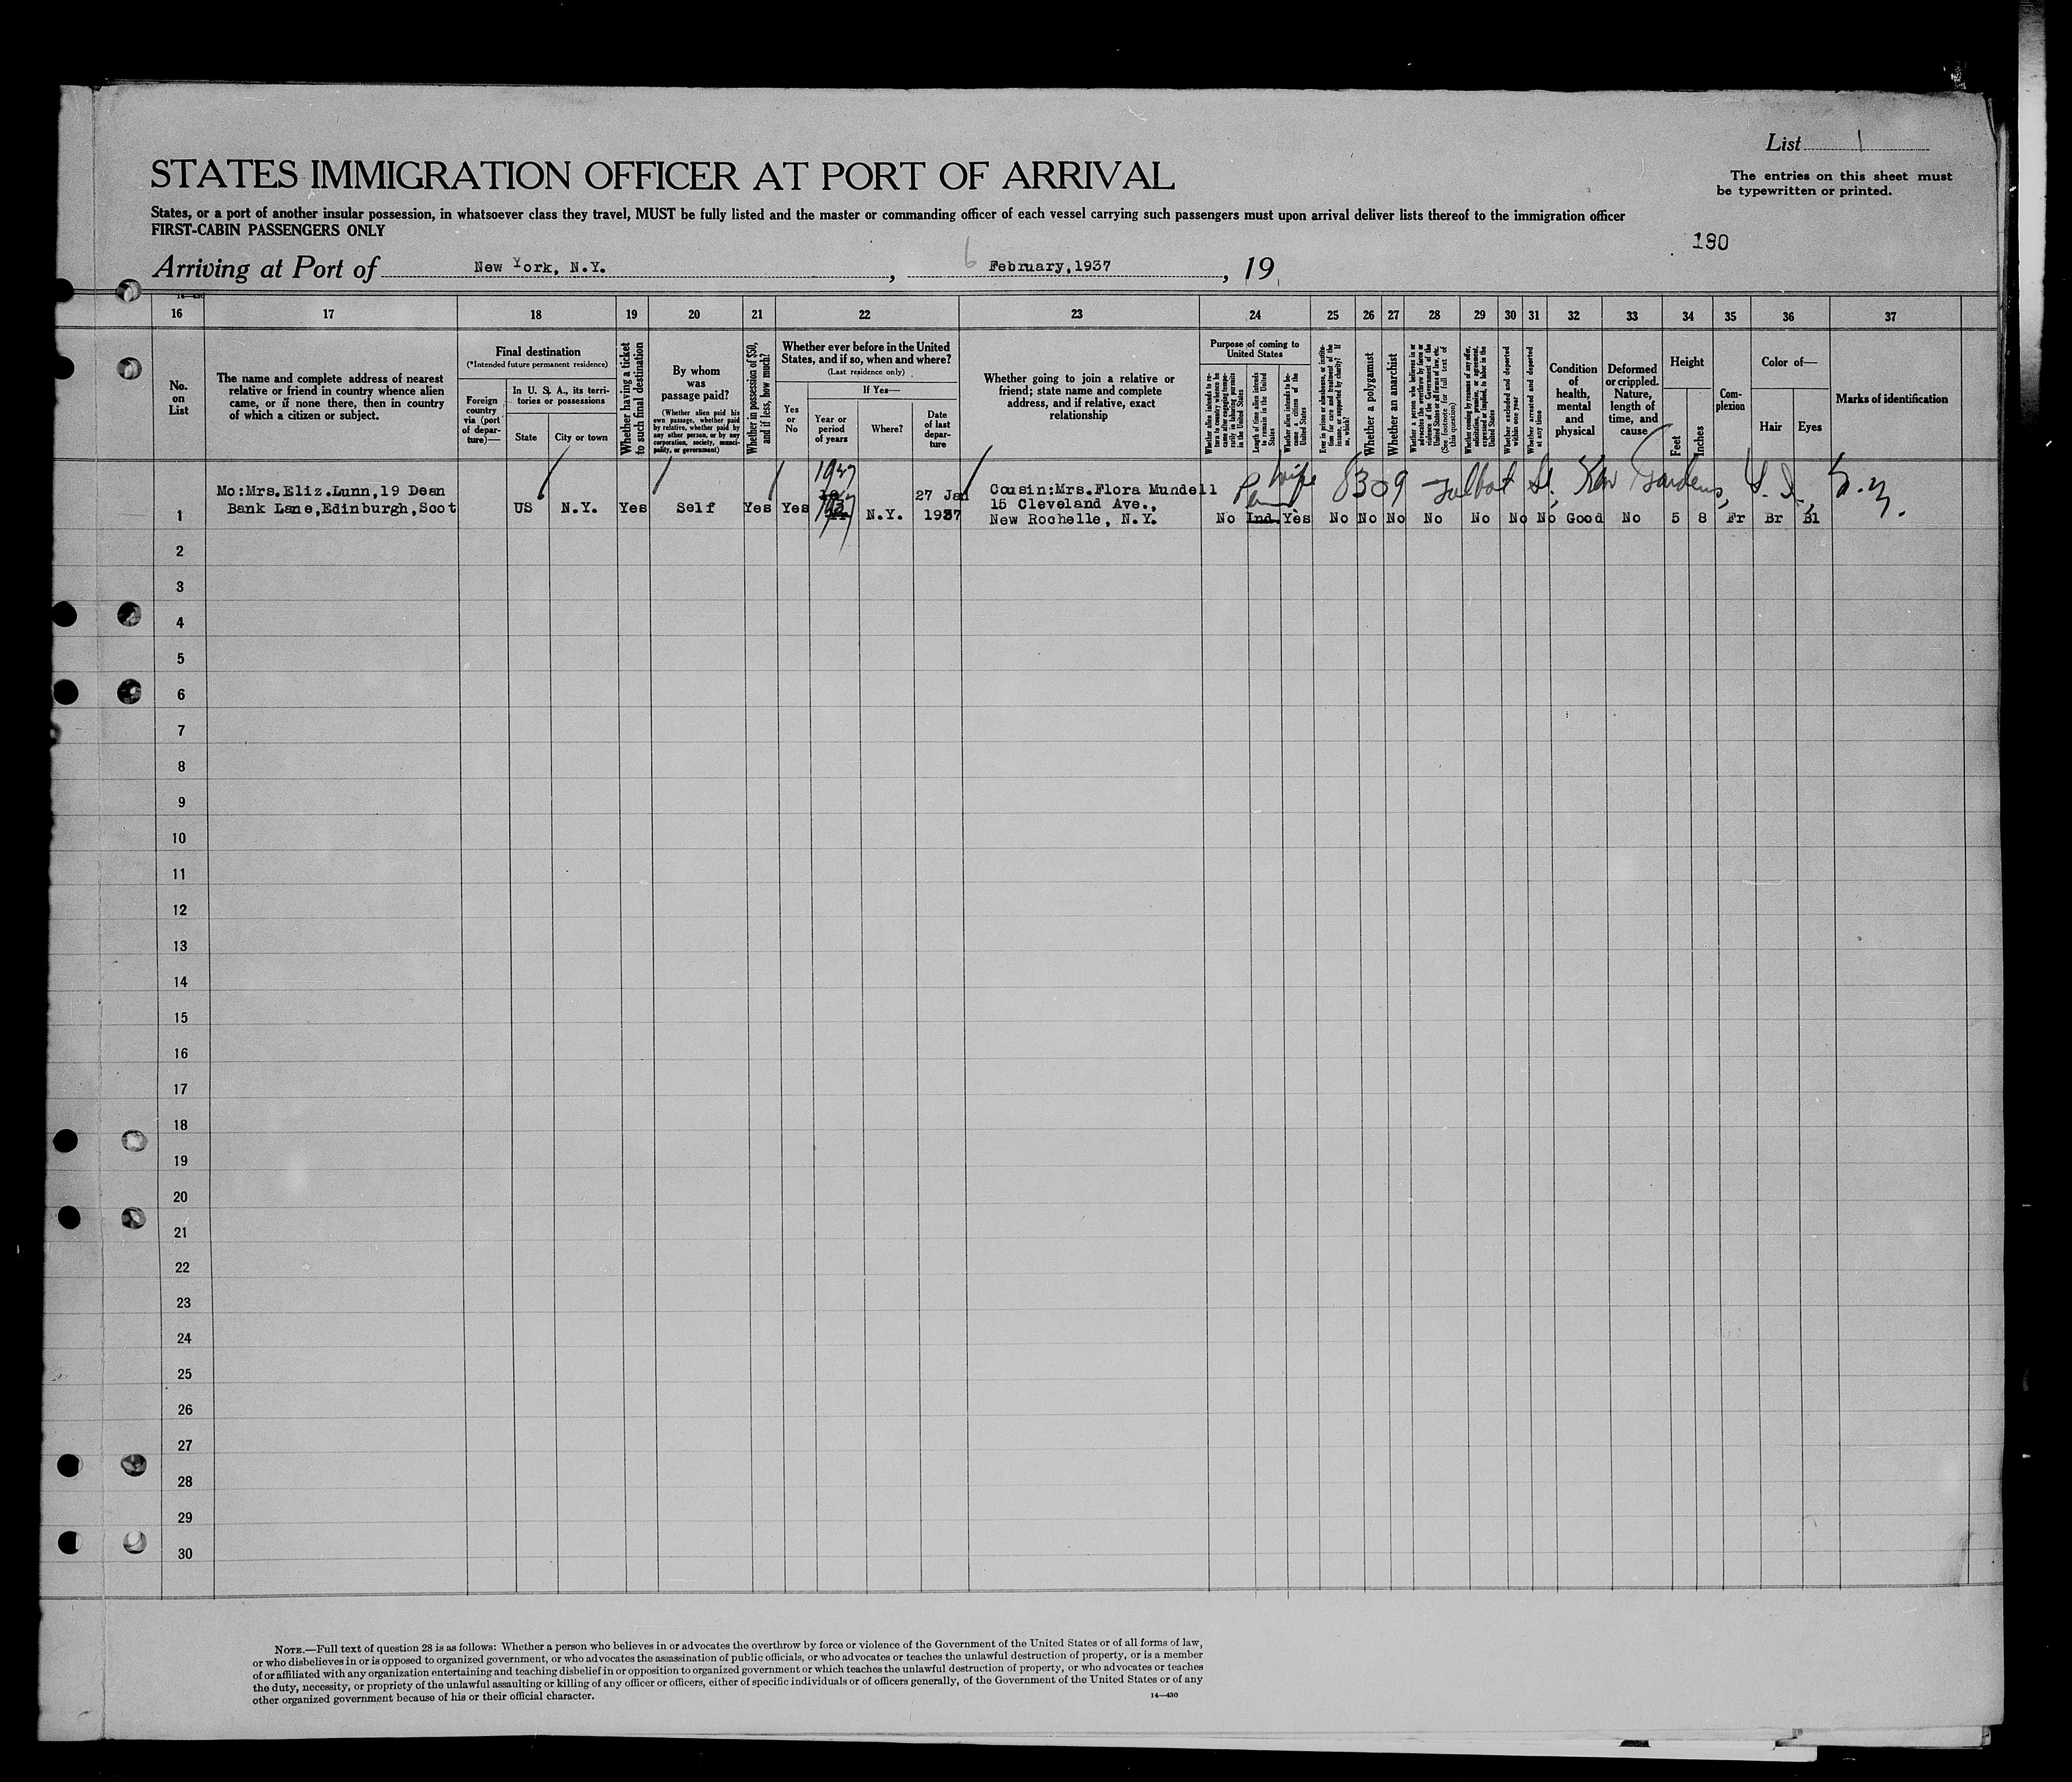 List 1
STATES IMMIGRATION OFFICER AT PORT OF ARRIVAL
The entries on this sheet must
be typewritten or printed.
States, or a port of another insular possession, in whatsoever class they travel, MUST be fully listed and the master or commanding officer of each vessel carrying such passengers must upon arrival deliver lists thereof to the immigration officer
FIRST-CABIN PASSENGERS ONLY
180
Arriving at Port of New York, N.Y., 6 February, 1937, 19
14—430
16 17 18 19 20 21 22 23 24 25 26 27 28 29 30 31 32 33 34 35 36 37
No.
on
List
The name and complete address of nearest
relative or friend in country whence alien
came, or if none there, then in country
of which a citizen or subject.
Final destination
(*Intended future permanent residence)
Foreign
country
via (port
of depar-
ture)—
In U. S. A., its terri-
tories or possessions
State
City or town
Whether having a ticket
to such final destination
By whom
was
passage paid?
(Whether alien paid his
own passage, whether paid
by relative, whether paid by
any other person, or by any
corporation, society, munici-
pality, or government)
Whether in possession of $50,
and if less, how much?
Whether ever before in the United
States, and if so, when and where?
(Last residence only)
Yes
or
No
If Yes—
Year or
period
of years
Where?
Date
of last
depar-
ture
Whether going to join a relative or
friend; state name and complete
address, and if relative, exact
relationship
Purpose of coming to
United States
Whether alien intends to re-
turn to country whence he
came after engaging tempo-
rarily in laboring pursuits
in the United States
Length of time alien intends
to remain in the United
States
Whether alien intends to be-
come a citizen of the
United States
Ever in prison or almshouse, or institu-
tion for care and treatment of the
insane, or supported by charity? If
so, which?
Whether a polygamist
Whether an anarchist
Whether a person who believes in or
advocates the overthrow by force or
violence of the Government of the
United States or all forms of law, etc.
(See footnote for full text of
this question)
Whether coming by reasons of any offer,
solicitation, promise, or agreement,
expressed or implied, to labor in the
United States
Whether excluded and deported
within one year
Whether arrested and deported
at any time
Condition
of
health,
mental
and
physical
Deformed
or crippled.
Nature,
length of
time, and
cause
Height
Feet
Inches
Com-
plexion
Color of—
Hair
Eyes
Marks of identification
1937
Wife 8309 Talbot St., Kew Gardens, L. I., N.Y.
Mo:Mrs.Eliz.Lunn,19 Dean
Bank Lane,Edinburgh,Scot
1 US N.Y. Yes Self Yes Yes N.Y.
27 Jan
1937
Cousin:Mrs.Flora Mundell
15 Cleveland Ave.,
New Rochelle, N.Y.
No Ind. Yes No No No No No No No Good No 5 8 Fr Br Bl
2
3
4
5
6
7
8
9
10
11
12
13
14
15
16
17
18
19
20
21
22
23
24
25
26
27
28
29
30
NOTE.—Full text of question 28 is as follows: Whether a person who believes in or advocates the overthrow by force or violence of the Government of the United States or of all forms of law,
or who disbelieves in or is opposed to organized government, or who advocates the assassination of public officials, or who advocates or teaches the unlawful destruction of property, or is a member
of or affiliated with any organization entertaining and teaching disbelief in or opposition to organized government or which teaches the unlawful destruction of property, or who advocates or teaches
the duty, necessity, or propriety of the unlawful assaulting or killing of any officer or officers, either of specific individuals or of officers generally, of the Government of the United States or of any
other organized government because of his or their official character.
14—430